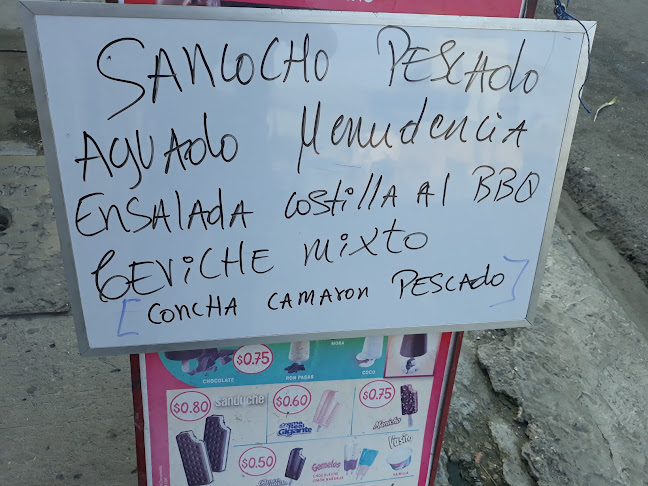 SANCOCHO PESCADO
AGUADO MENUDENCIA
ENSALADA COSTILLA AL BBQ
CEVICHE MIXTO
[CONCHA CAMARON PESCADO]
MORA
CHOCOLATE $0.75 RON PASAS COCO
$0.80 sanduche $0.60 $0.75
Gigante
$0.50 Gemelos Vasito
VAINILLA